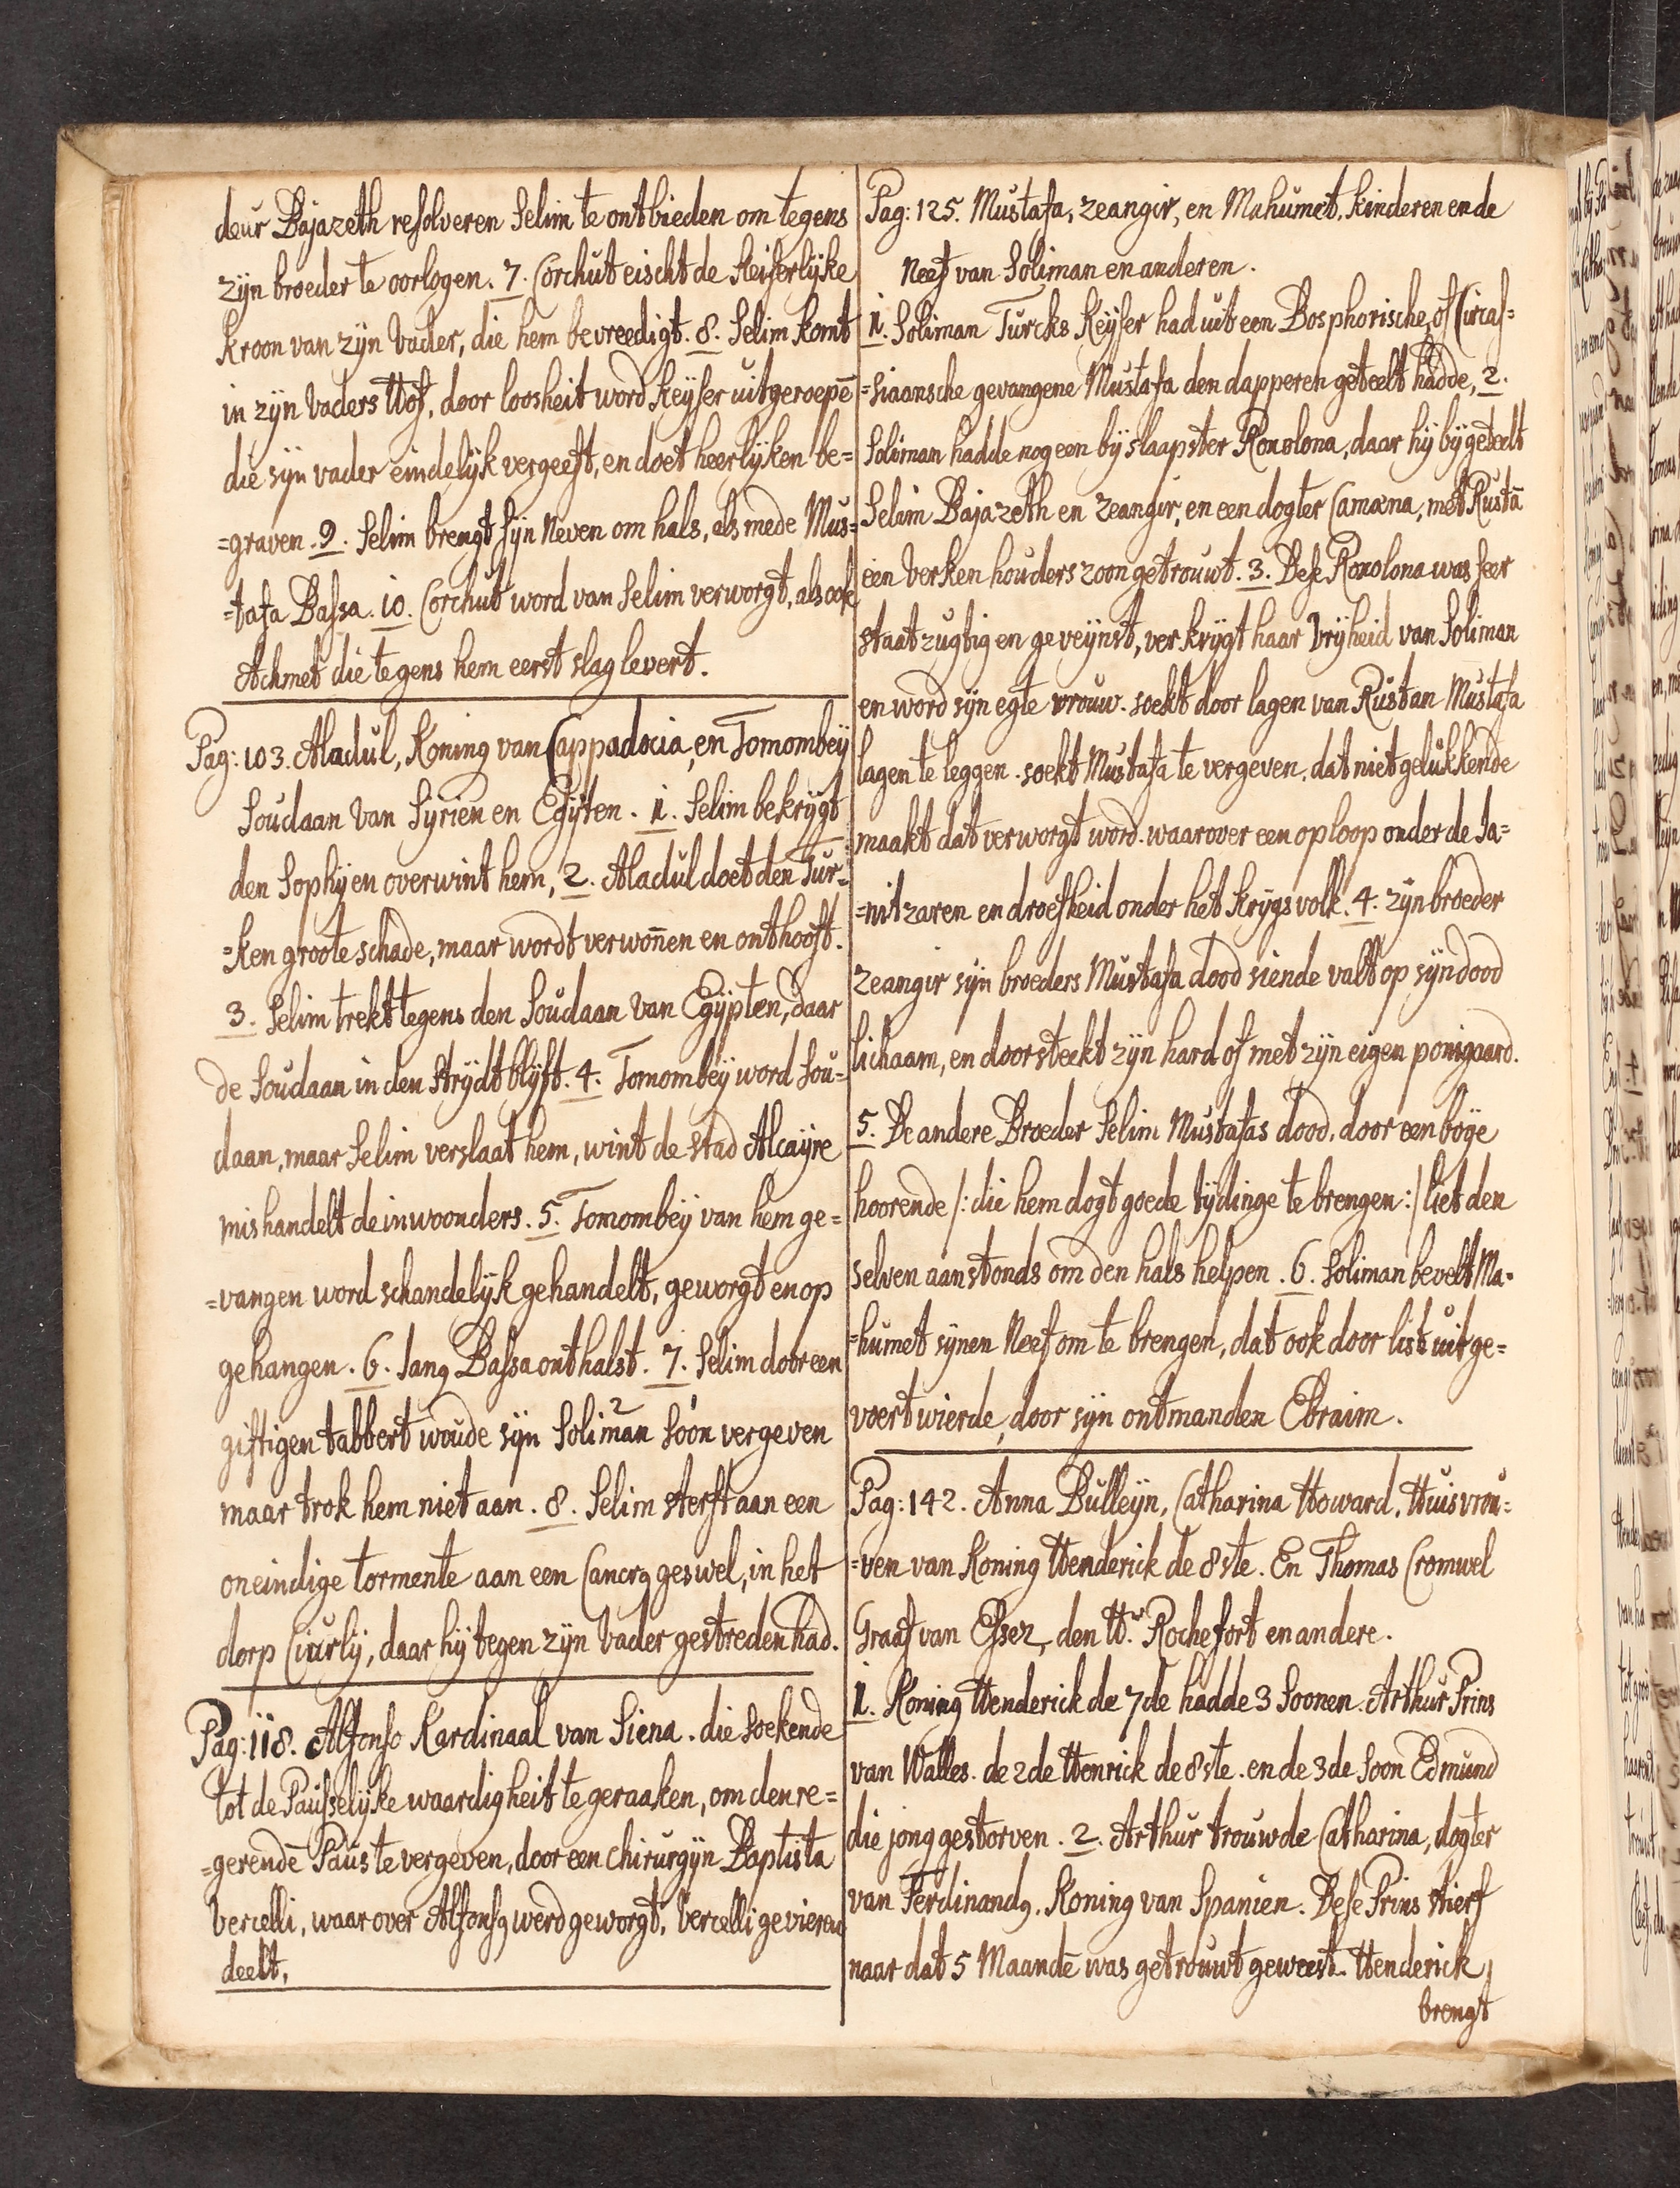 deur Bajazeth resolveren Selim te ontbieden om tegens
zijn broeder te oorlogen. 7. Corchut eischt de Keiserlijke
kroon van zijn Vader, die hem bevreedigt. 8. Selim komt
in zijn Vaders Hof, door loosheit word Keijser uitgeroepē
die sijn vader eindelijk vergeeft, en doet heerlijken be=
=graven. 9. Selim brengt sijn Neven om hals, als mede Mus=
=tafa Bassa. 10. Corchut word van Selim verworgt, als ook
Achmet die tegens hem eerst slag levert.
Pag: 103. Aladul, Koning van Cappadocia, en Tomombeij
Soudaan van Sijrien en Egijten. 1. Selim bekrijgt
den Sophij en overwint hem, 2. Aladul doet den Tur=
=ken groote schade, maar wordt verwoñen en onthooft.
3. Selim trekt tegens den Soudaan van Egijpten, daar
de Soudaan in den strijdt blijft. 4. Tomombeij word Sou=
daan, maar Selim verslaat hem, wint de stad Alcaijre
mishandelt de inwoonders. 5. Tomombeij van hem ge=
=vangen word schandelijk gehandelt, geworgt en op
gehangen. 6. Iang Bassa onthalst. 7. Selim door een
giftigen tabbert woude sijn Soliman 2 soon 1 vergeven
maar trok hem niet aan. 8. Selim sterft aan een
oneindige tormente aan een Cancrg geswel, in het
dorp Ciurlij, daar hij tegen zijn Vader gestreden had.
Pag: 118. Alfonso Kardinaal van Siena. die soekende
tot de Pausselijke waardigheit te geraaken, om den re=
=gerendē Paus te vergeven, door een chirurgijn Baptista
Vercelli, waar over Alfonsg werd geworgt, Vercelli gevieren
deelt.
Pag: 125. Mustafa, Zeangir, en Mahumet, kinderen ende
Neef van Soliman en anderen.
1. Soliman Turcks Keijser had uit een Bosphorische, of Circas=
=siaansche gevangene Mustafa den dapperen geteelt hadde, 2.
Soliman hadde nog een bijslaapster Roxolona, daar hij bij geteelt
Selim Bajazeth en Zeangir, en een dogter Camæna, met Rustā
een Verken houders zoon getrouwt. 3. Dese Roxolona was seer
staatzugtig en geveijnst, verkrijgt haar Vrijheid van Soliman
en word sijn egte vrouw. soekt door lagen van Rustan Mustafa
lagen te leggen. soekt Mustafa te vergeven. dat niet gelukkende
maakt dat verworgt word. waarover een oploop onder de Ja=
=nitzaren en droefheid onder het krijgsvolk. 4. zijn broeder
Zeangir sijn broeders Mustafa dood siende valt op sijn dood
lichaam, en doorsteekt zijn hard of met zijn eigen ponigaard.
5. De andere Broeder Selim Mustafas dood, door een boije
hoorende /: die hem dogt goede tijdinge te brengen :/ liet den
selven aanstonds om den hals helpen. 6. Soliman bevelt Ma=
=humet sijnen Neef om te brengen, dat ook door list uitge=
voert wierde, door sijn ontmanden Ebraim.
Pag: 142. Anna Bulleijn, Catharina Howard, Huisvrou=
=ven van Koning Henderick de 8ste. En Thomas Cromwel
Graaf van Essez, den Hr. Rochefort en andere.
1. Koning Henderick de 7de hadde 3 Soonen. Arthur Prins
van Walles. de 2de Henrick de 8ste. en de 3de Soon Edmund
die jong gestorven. 2. Arthur trouwde Catharina, dogter
van Ferdinandg. Koning van Spanien. Dese Prins stierf
naar dat 5 Maandē was getrouwt geweest. Henderick
brengt